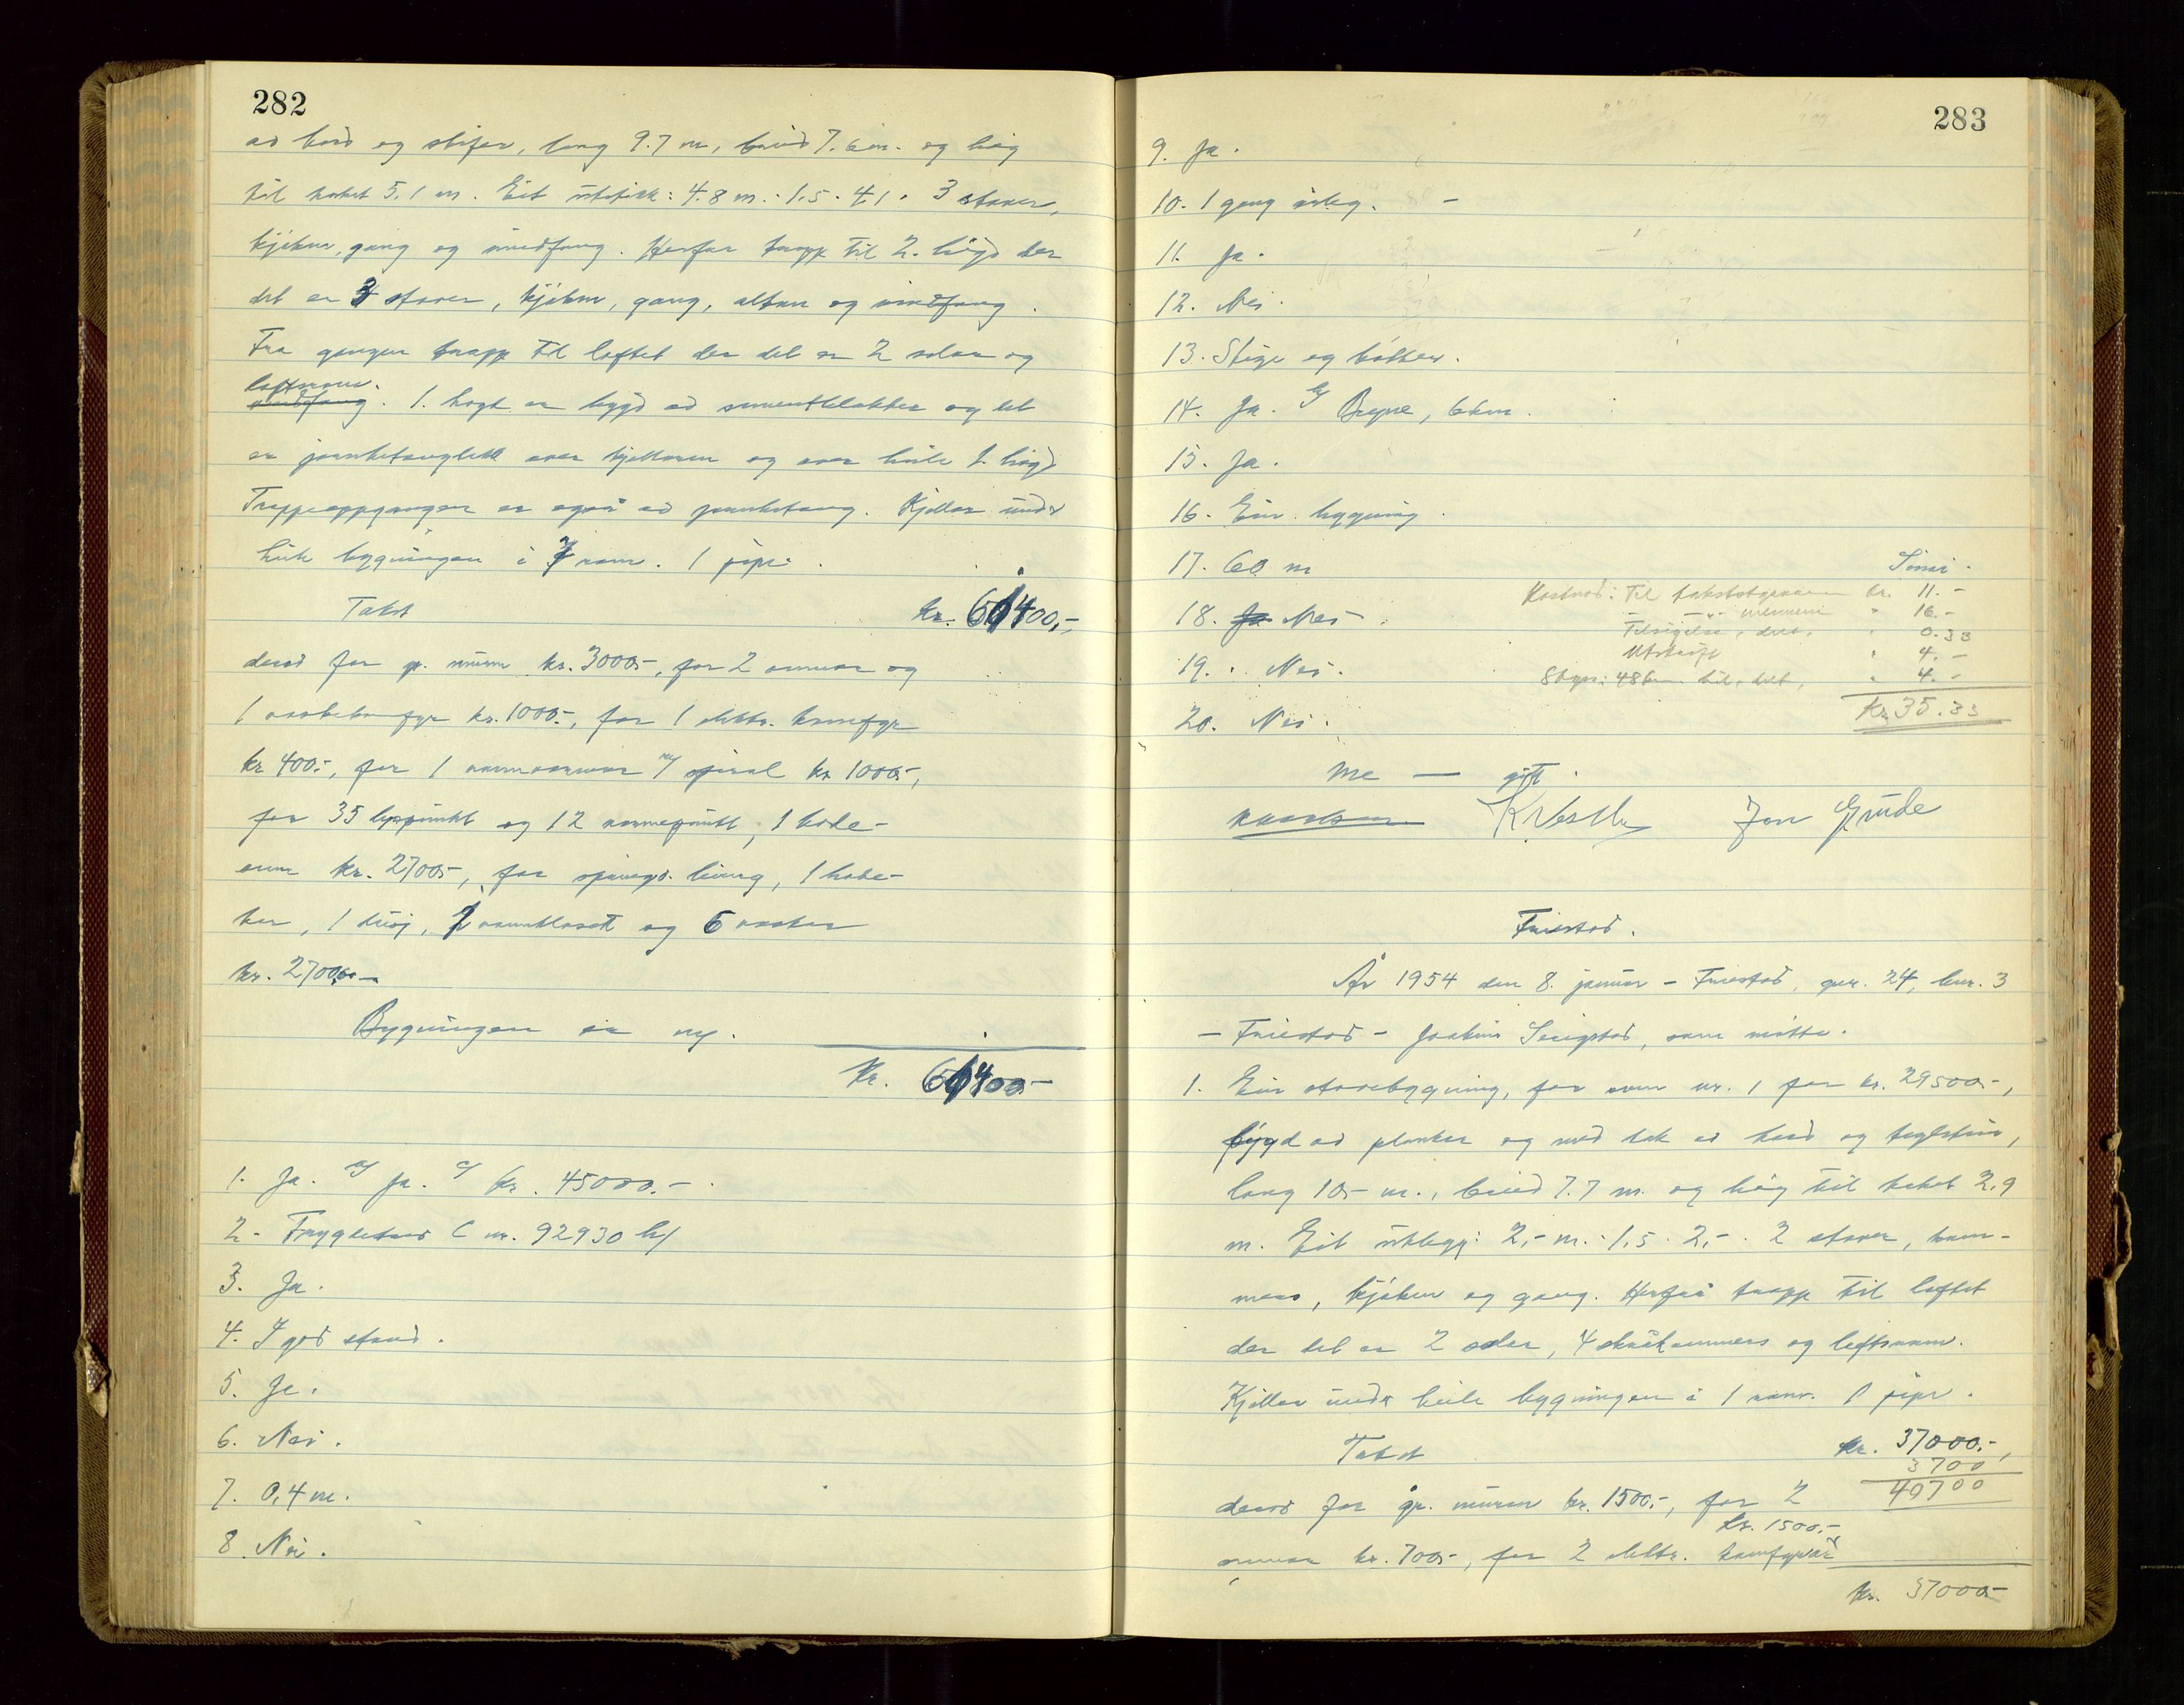 282
av bord og stifer, lang 9.7 m, breid 7.6 m. og høg
til taket 5.1 m. Eit utstikk: 4.8 m. · 1.5 · 4.1. 3 stover,
kjøken, gang og vindfang. Herfar trapp til 2. høgd der
det er 3 stover, kjøken, gang, altan og vindfang.
Frå gangen trapp til loftet der det er 2 soler og
loftsrom.
vindfang. 1. høgd er bygd av sementblokker og det
er jarnbetongdekk over kjellaren og over heile 1. høgd
Trappeoppgangen er også av jarnbetong. Kjellar under
heile bygningen i 7 rom. 1 pipe.
Takst kr. 61400,-
derav for gr. muren kr. 3000,-, for 2 omnar og
1 vaskekomfyr kr. 1000.-, for 1 elektr. komfyr
kr 400.-, for 1 varmvassomn m/ spiral kr 1000,-,
for 35 lyspunkt og 12 varmepunkt, 1 bade-
omn kr. 2700,-, for springv. leiing, 1 bade-
kar, 1 dusj, 2 vannklosett og 6 vasker
kr. 2700,-
Bygningen er ny.
Kr. 61400.-
1. Ja. b/ Ja. c/ kr. 45000.-
2. Trygdelaus C nr. 92930 b/
3. Ja.
4. I god stand.
5. Ja.
6. Nei.
7. 0,4 m.
8. Nei.
283
9. Ja.
10. 1 gang årleg.
11. Ja.
12. Nei.
13. Stige og bøtter.
14. Ja. b/ Bryne, 6 km.
15. Ja.
16. Ein bygning.
17. 60 m
18. Ja Nei.
19. Nei.
20. Nei.
Kostnad: Til takstborgaren kr. 11.-
— -"- mennene " 16.-
Tilsigelse, delt, " 0.33
Utskrift " 4.-
Skyss: 48 km bil, delt, " 4.-
Kr. 35.33
Me — gitt.
K Vestly Jon Grude
Friestad.
År 1954 den 8. januar - Friestad, gnr. 24, bnr. 3
- Friestad - Joakim Serigstad, som møtte.
1. Ein stovebygning, før omn nr. 1 for kr. 29500.-,
bygd av planker og med tak av bord og taglstein,
lang 10,- m., breid 7.7 m. og høg til taket 2,9
m. Eit utbygg: 2,- m. · 1,5 · 2,-. 2 stover, kam-
mers, kjøken og gang. Herfrå trapp til loftet
der det er 2 soler, 4 skråkammers og loftsrom.
Kjellar under heile bygningen i 1 rom. 1 pipe.
Takst kr. 37000.-,
3700
40700
derav for gr. muren kr. 1500.-, for 2
kr. 1500.-
omnar kr. 700,-, for 2 elektr. komfyrar
kr. 37000.-